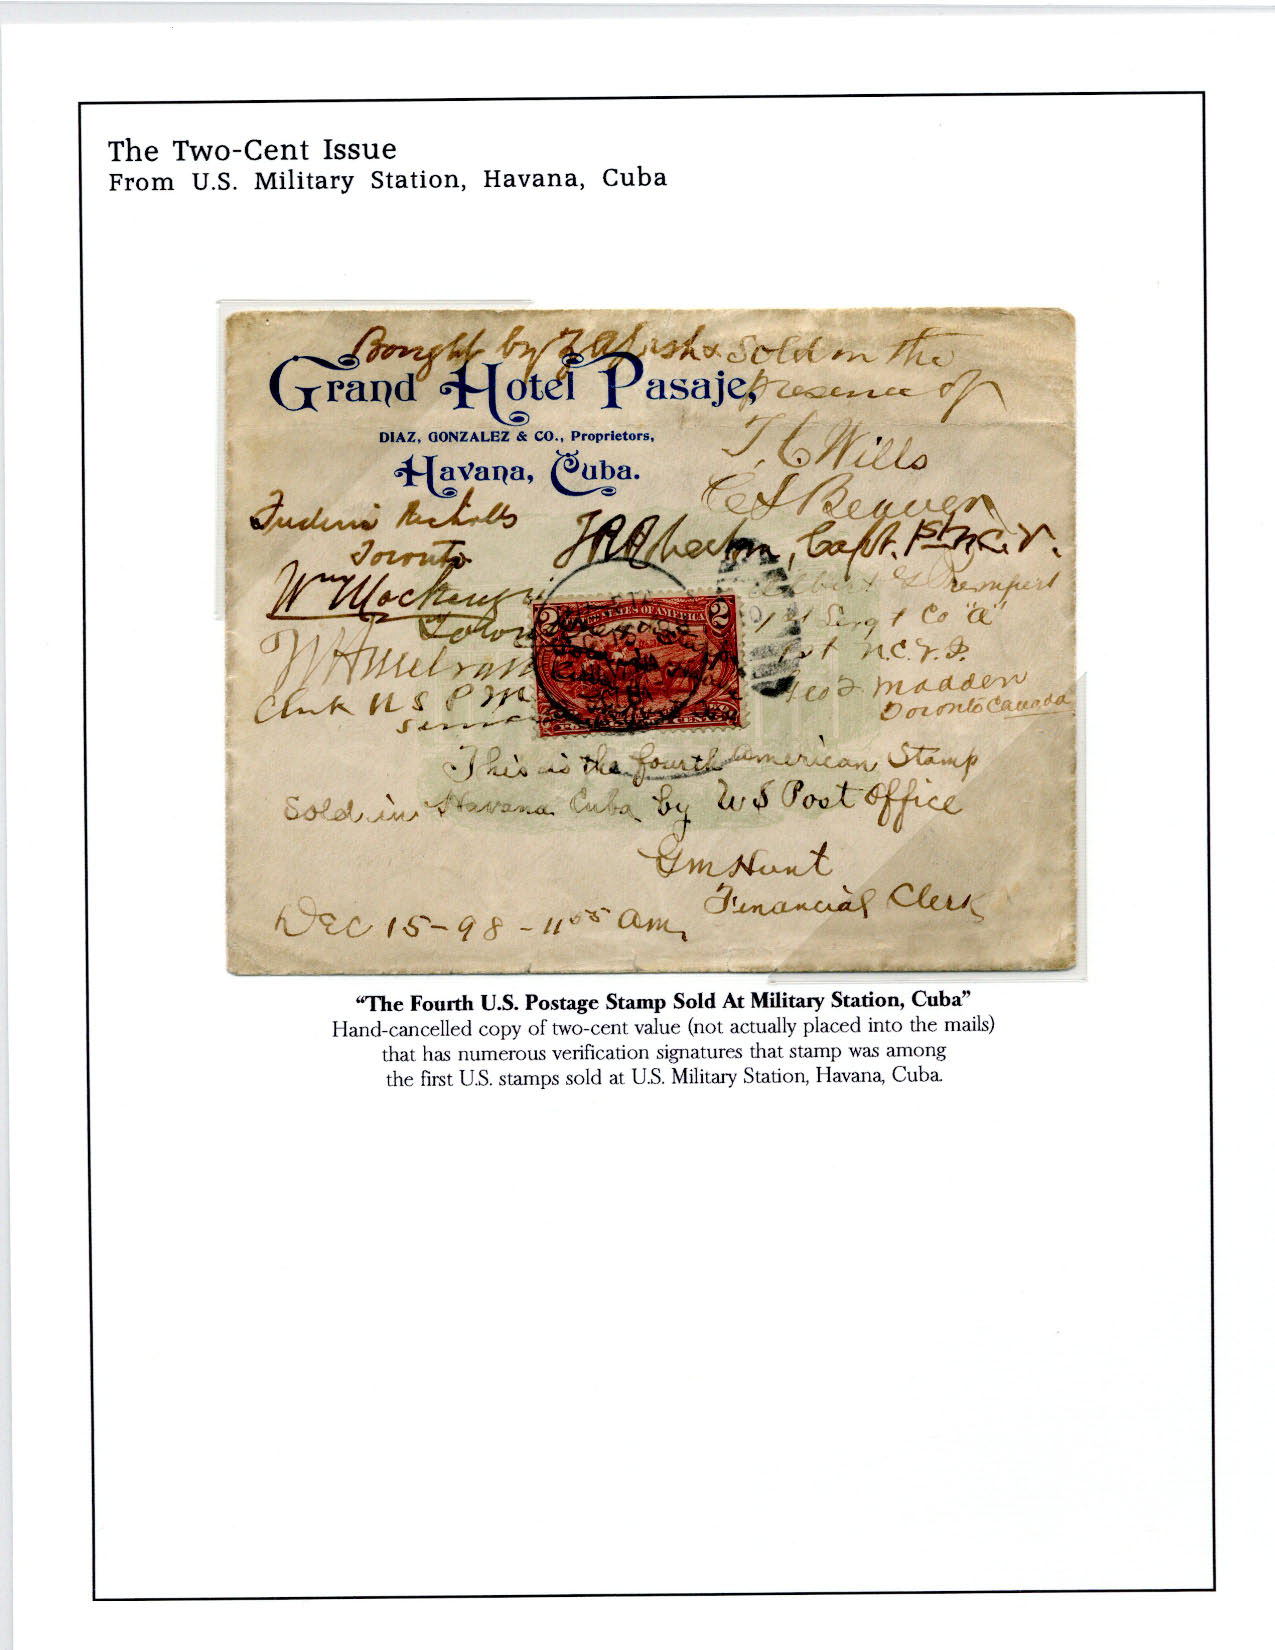 The Two-Cent Issue
From U.S. Military Station, Havana, Cuba
Bought by & sold in the
presence of
Grand Hotel Pasaje,
DIAZ, GONZALEZ & CO., Proprietors,
Havana, Cuba.
T. C. Wills
C S Beaver
Nicholls
Toronto
Capt. 1st N.C. V.
Wm Mackenzie
Toronto
2 STATES OF AMERICA 2
1st Sergt Co "A"
1st N.C. V. I.
Clerk U S P M
Geo Madden
Toronto Canada
This is the fourth American Stamp
Sold in Havana Cuba by U S Post Office
G M Hunt
Financial Clerk
Dec 15 - 98 - 11 05 am
"The Fourth U.S. Postage Stamp Sold At Military Station, Cuba"
Hand-cancelled copy of two-cent value (not actually placed into the mails)
that has numerous verification signatures that stamp was among
the first U.S. stamps sold at U.S. Military Station, Havana, Cuba.